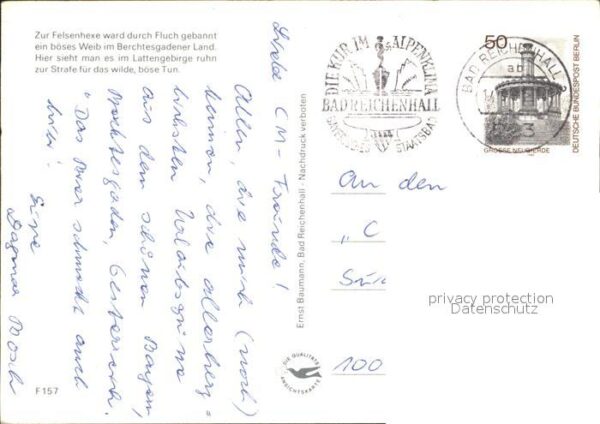 Zur Felsenhexe ward durch Fluch gebannt
ein böses Weib im Berchtesgadener Land.
Hier sieht man es im Lattengebirge ruhn
zur Strafe für das wilde, böse Tun.
Liebe CM-Freunde!
Allen, die mich (noch)
kennen, die allerherz-
liebsten Urlaubsgrüsse
aus dem schönen Bayern,
Berchtesgaden, Österreich.
"Das Bier schmeckt auch
hier!
Eure
Dagmar
F 157
Ernst Baumann, Bad Reichenhall - Nachdruck verboten
DIE QUALITÄTS
ANSICHTSKARTE
DIE KUR IM ALPENKLIMA
BAD REICHENHALL
BAYERISCHES STAATSBAD
BAD REICHENHALL 2
ad
50
DEUTSCHE BUNDESPOST BERLIN
GROSSE NEUGIERDE
An den
„C
100
privacy protection
Datenschutz